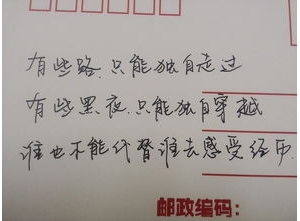 有些路.只能独自走过
有些黑夜.只能独自穿越
谁也不能代替谁去感受经历
邮政编码: